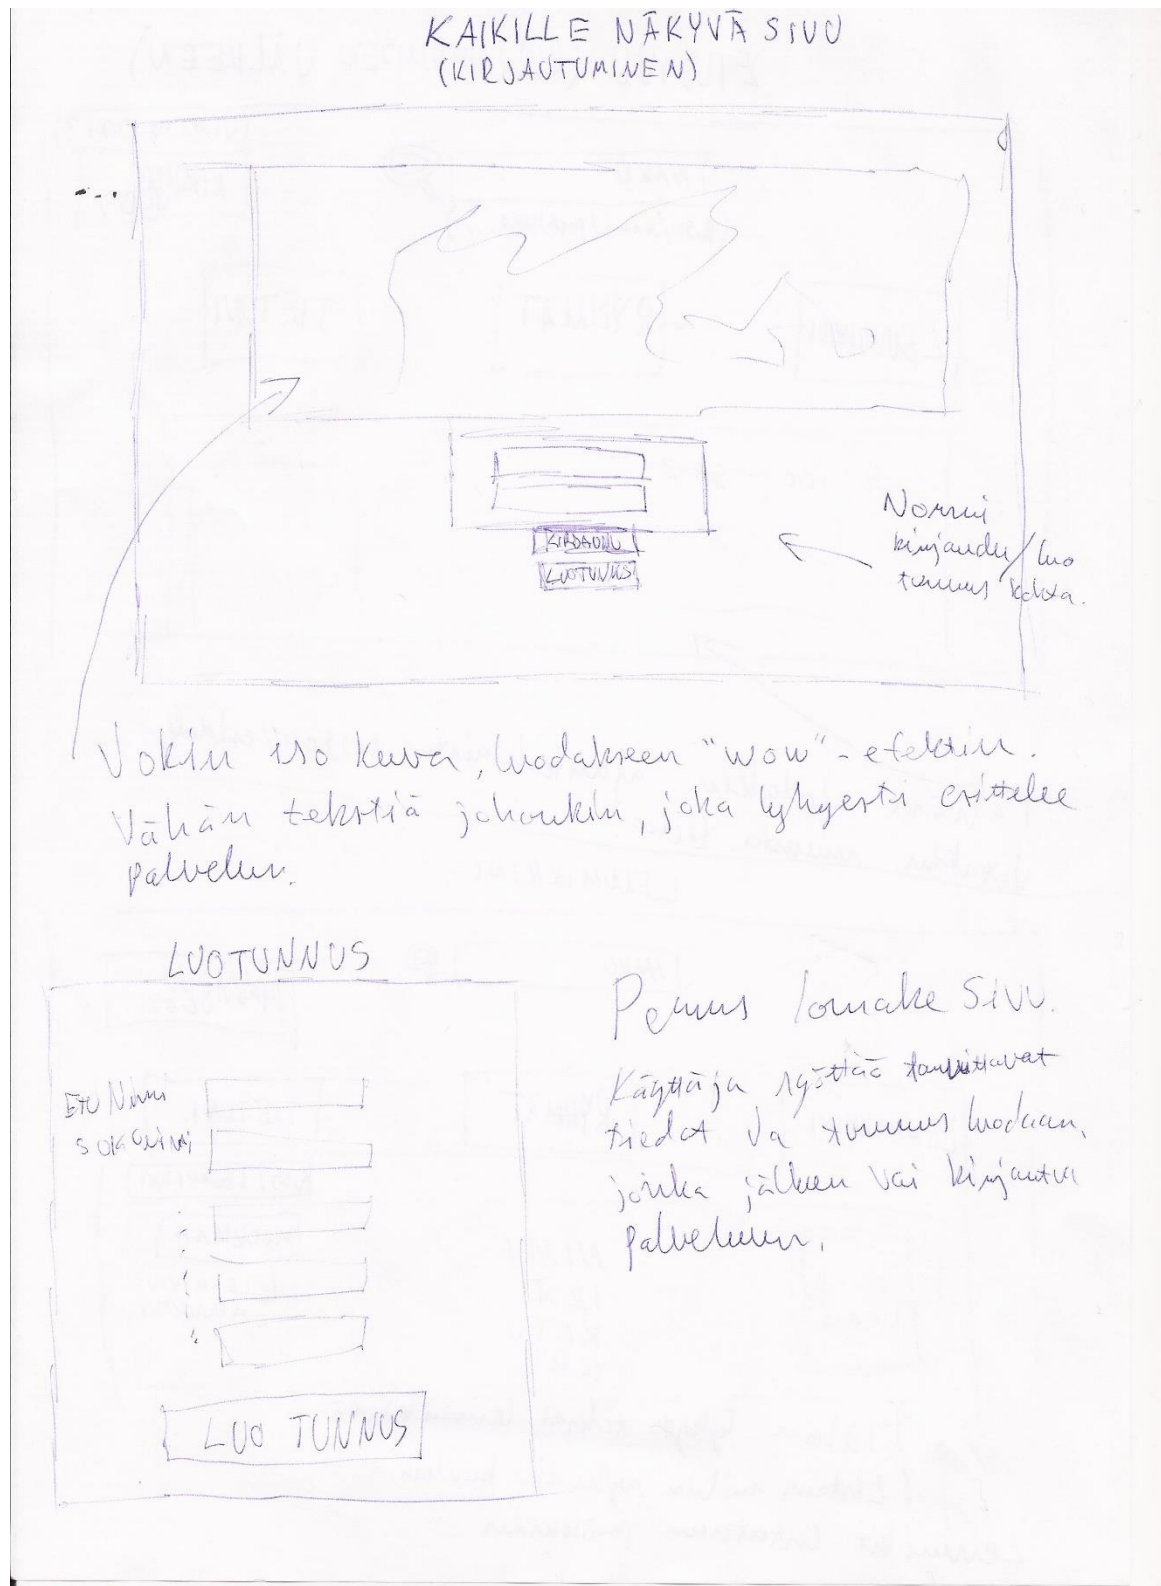 KAIKILLE NÄKYVÄ SIVU
(KIRJAUTUMINEN)
KIRJAUDU
LUOTUNNUS
Normi
kirjaudu/luo
tunnus kohta.
Jokin iso kuva, luodakseen "wow"-efektin.
Vähän tekstiä johonkin, joka lyhyesti esittelee
palvelun.
LUOTUNNUS
Perus lomake SIVU.
ETU NIMI
SUKUNIMI
Käyttäjä syöttää tarvittavat
tiedot Ja tunnus luodaan,
jonka jälkeen voi kirjautua
palveluun.
LUO TUNNUS